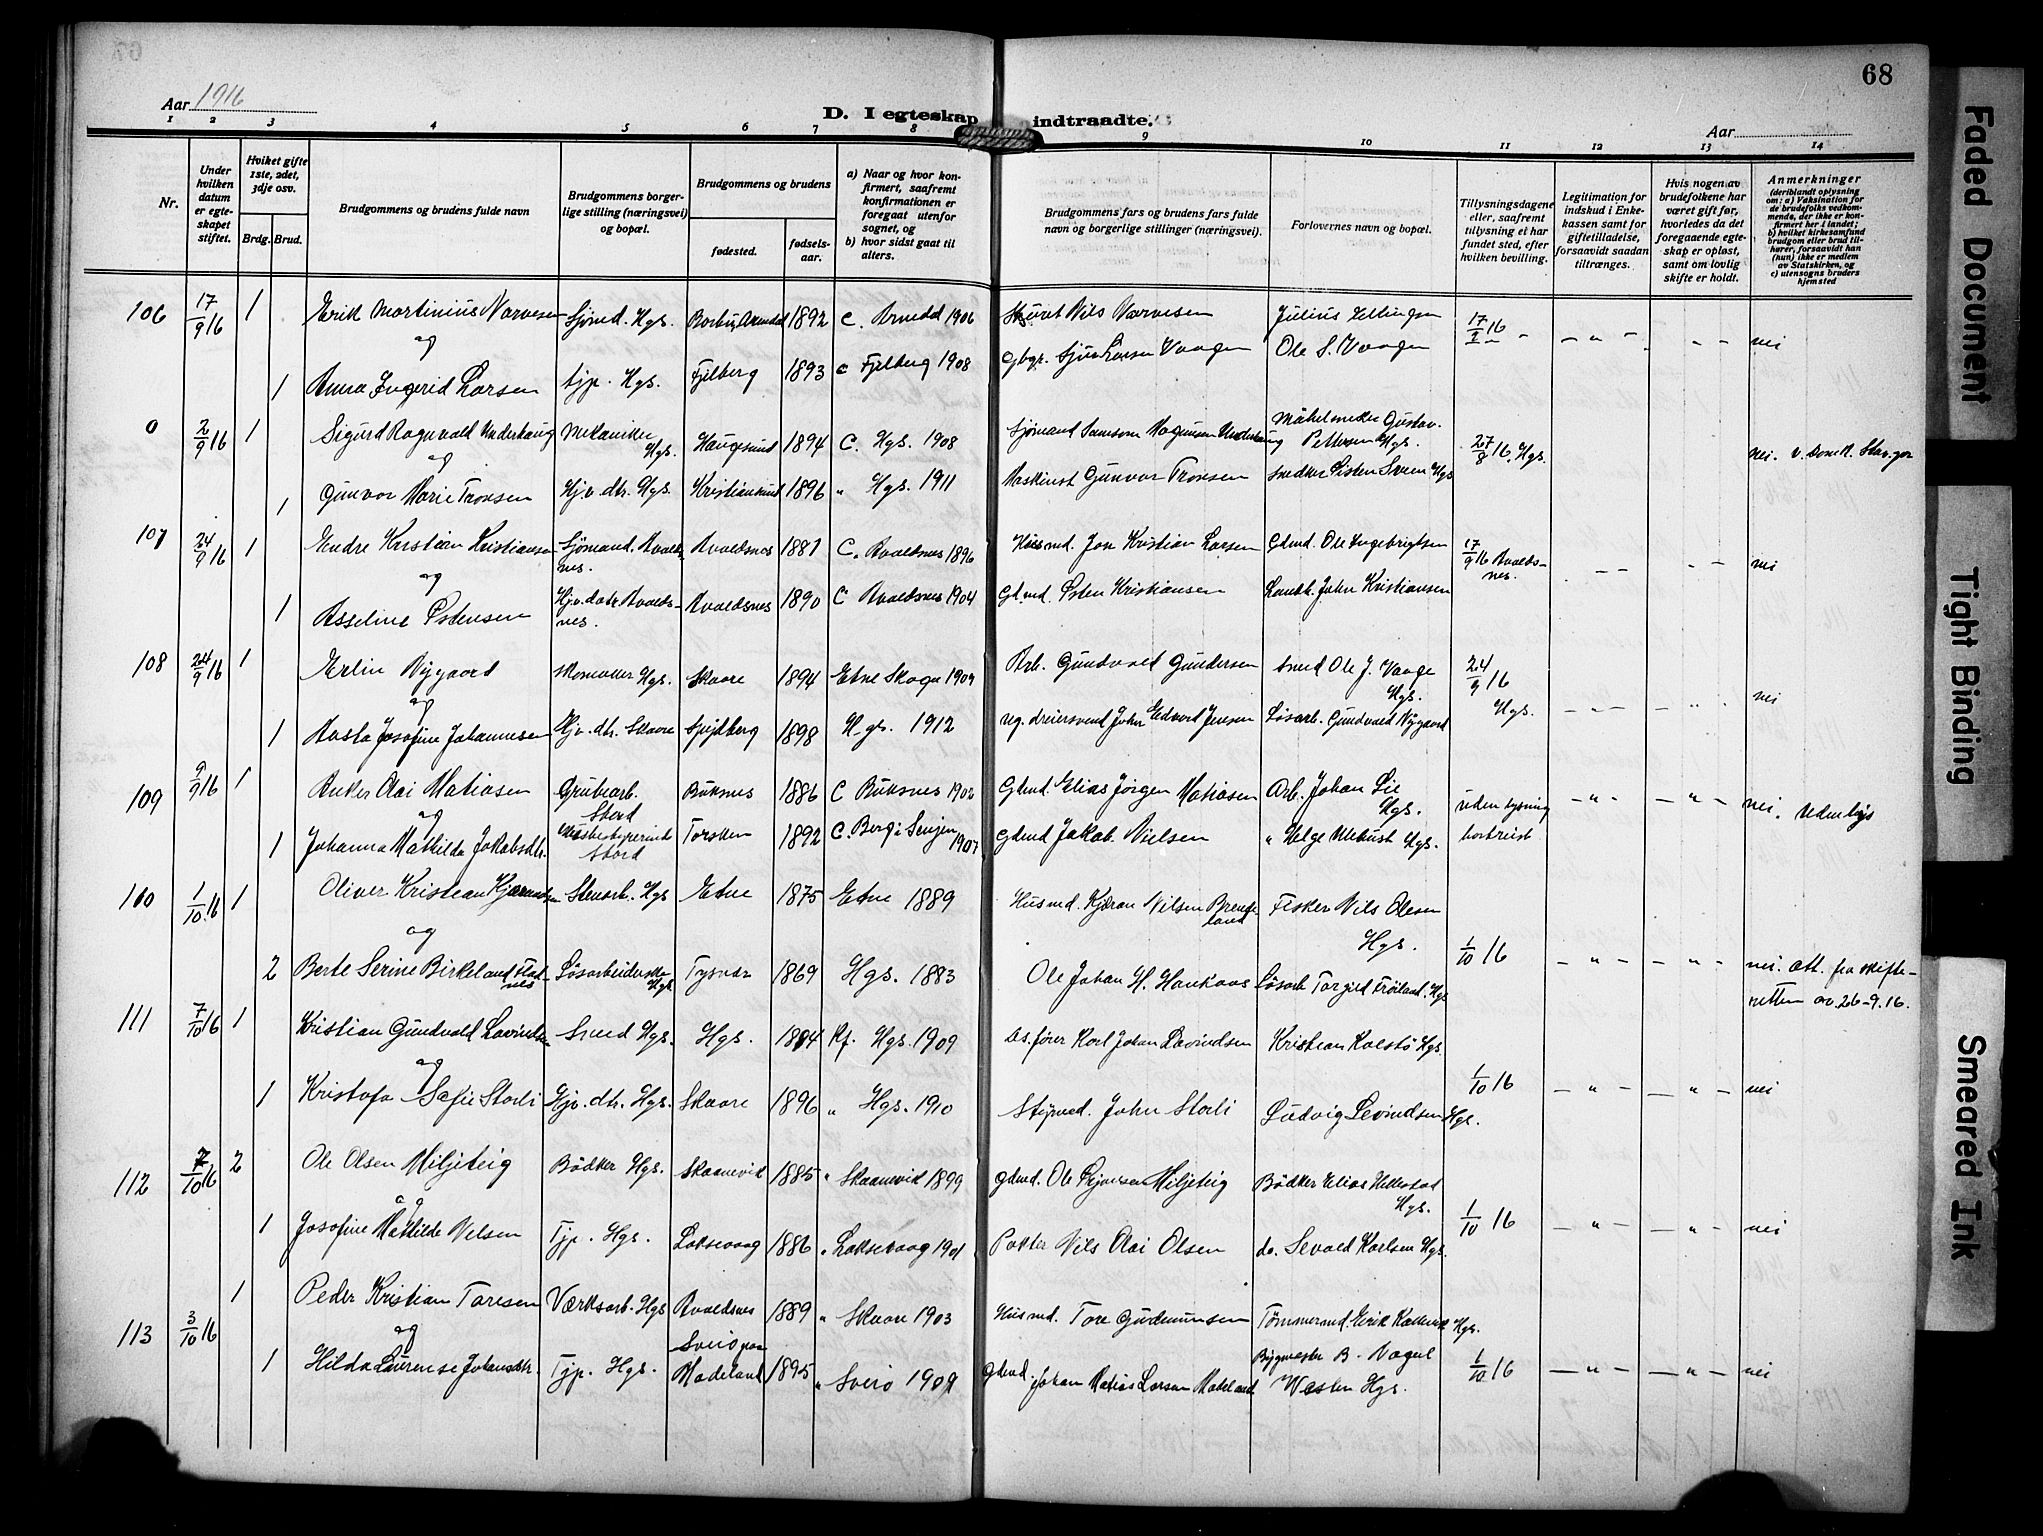 68
Aar 1916
D. I egteskap indtraadte.
Aar
1 2 3 4 5 6 7 8 9 10 11 12 13 14
Nr.
Under hvilken datum er egteskapet stiftet.
Hvilket gifte 1ste, 2det, 3dje osv.
Brdg. Brud.
Brudgommens og brudens fulde navn
Brudgommens borgerlige stilling (næringsvei) og bopæl.
Brudgommens og brudens
fødested. fødselsaar.
a) Naar og hvor konfirmert, saafremt konfirmationen er foregaat utenfor sognet, og
b) hvor sidst gaat til alters.
Brudgommens fars og brudens fars fulde navn og borgerlige stillinger (næringsvei).
Forlovernes navn og bopæl.
Tillysningsdagene eller, saafremt tillysning ei har fundet sted, efter hvilken bevilling.
Legitimation for indskud i Enkekassen samt for giftetilladelse, forsaavidt saadan tiltrænges.
Hvis nogen av brudefolkene har været gift før, hvorledes da det foregaaende egteskap er opløst, samt om lovlig skifte er holdt.
Anmerkninger
(deriblandt oplysning om: a) Vaksination for de brudefolks vedkommende, der ikke er konfirmert her i landet; b) hvilket kirkesamfund brudgom eller brud tilhører, forsaavidt han (hun) ikke er medlem av Statskirken, og c) utensogns bruders hjemsted
106 17/9 16 1 Erik Martinius Norvesen Sjømd. Hgs. 1892 C. Arendal 1906 Nils Norvesen Julius Ellingsen 17/9 16 nei
og
1 Anna Ingerid Larsen tjp. Hgs. Fjelberg 1893 C Fjelberg 1908 Gbgr. Sjur Larsen Vaagen Ole S. Vaagen
0 2/9 16 1 Sigurd Ragnvald Underhaug Mekaniker Hgs. Haugesund 1894 C. Hgs. 1908 Sjømand Samson Magnusen Underhaug Gustav Pettersen Hgs. 27/8 16. Hgs. nei.
og
1 Gunvor Marie Tronsen Hjv. dtr. Hgs. Kristiansund 1896 " Hgs. 1911 Maskinist Gunvor Tronsen Snedker Hgs
107 24/9 16 1 Endre Kristian Kristiansen Sjømand. Avaldsnes. Avaldsnes 1881 C. Avaldsnes 1896 Husmd. Jon Kristian Larsen Gdmd. Ole Ingebrigtsen 17/9 16 Avaldsnes. nei
og
1 Asseline Østensen Hjv. datr. Avaldsnes. Avaldsnes 1890 C Avaldsnes 1904 Gdmd. Østen Kristiansen Landh. John Kristiansen
108 24/9 16 1 Erlin Nygaard Skomaker Hgs. Skaare 1894 Etne Skogn 1909 Arb. Gundvald Gundersen Smed Ole J. Vaage Hgs. 24/9 16 Hgs. nei
og
1 Aasta Josofine Johannesen Hjv. dtr. Skaare 1898 Hgs. 1912 John Edvard Jensen Løsarb. Gundvald Nygaard
109 9/9 16 1 Anker Olai Matiasen Grubearb. Stord Buksnes 1886 C Buksnes 1902 Gdmd. Elias Jørgen Matiasen Arb. Johan Lie Hgs. uden lysning bortreist nei.
og
1 Johanna Mathilda Jakobsdtr. Stord Torsken 1892 C. Berg i Senjen 1907 Gdmd Jakob Nielsen " Helge Hgs.
110 1/10 16 1 Oliver Kristian Stenarb. Hgs Etne 1875 Etne 1889 Husmd. Kjæran Nilsen Fisker Nils Olesen Hgs. 1/10 16
og
2 Berte Serine Birkeland Flatnes Løsarbeiderske Hgs. Tysvær 1869 Hgs. 1883 Ole Johan H. Haukaas Løsarb. Torgils Frøiland. Hgs nei. Att. fra skifteretten av 26-9.16.
111 7/10 16 1 Kristian Gundvald Levindsen Smed Hgs. Hgs. 1894 Kf. Hgs. 1909 Ds. fører Karl Johan Levindsen Kristian Kolstø Hgs. 1/10 16 nei
og
1 Kristofa Sofie Storli Hjv. dtr. Hgs. Skaare 1896 " Hgs. 1910 Styrmd. John Storli Ludvig Levindsen Hgs.
112 7/10 16 2 Ole Olsen Miljeteig Bødker Hgs. Skaanevik 1885 " Skaanevik 1899 Gdmd. Ole Miljeteig Bødker Elias Hgs. 1/10 16 nei
og
1 Josofine Mathilde Nelsen Tjp. Hgs. Laksevaag 1886 " Laksevaag 1901 Nils Olai Olsen do. Sevald Karlsen Hgs.
113 3/10 16 1 Peder Kristian Toresen Værksarb. Hgs Avaldsnes 1889 " Skaare 1903 Husmd. Tore Gudmunsen Tømmermd. Erik Hgs.
og
1 Hilda Laurense Johansdtr. Tjp. Hgs. Sveio Madeland 1895 " Sveio 1909 Gdmd. Johan Matias Larsen Madeland Bygmester B. Nagel Westen Hgs. 1/10 16 nei
Faded Document
Tight Binding
Smeared Ink